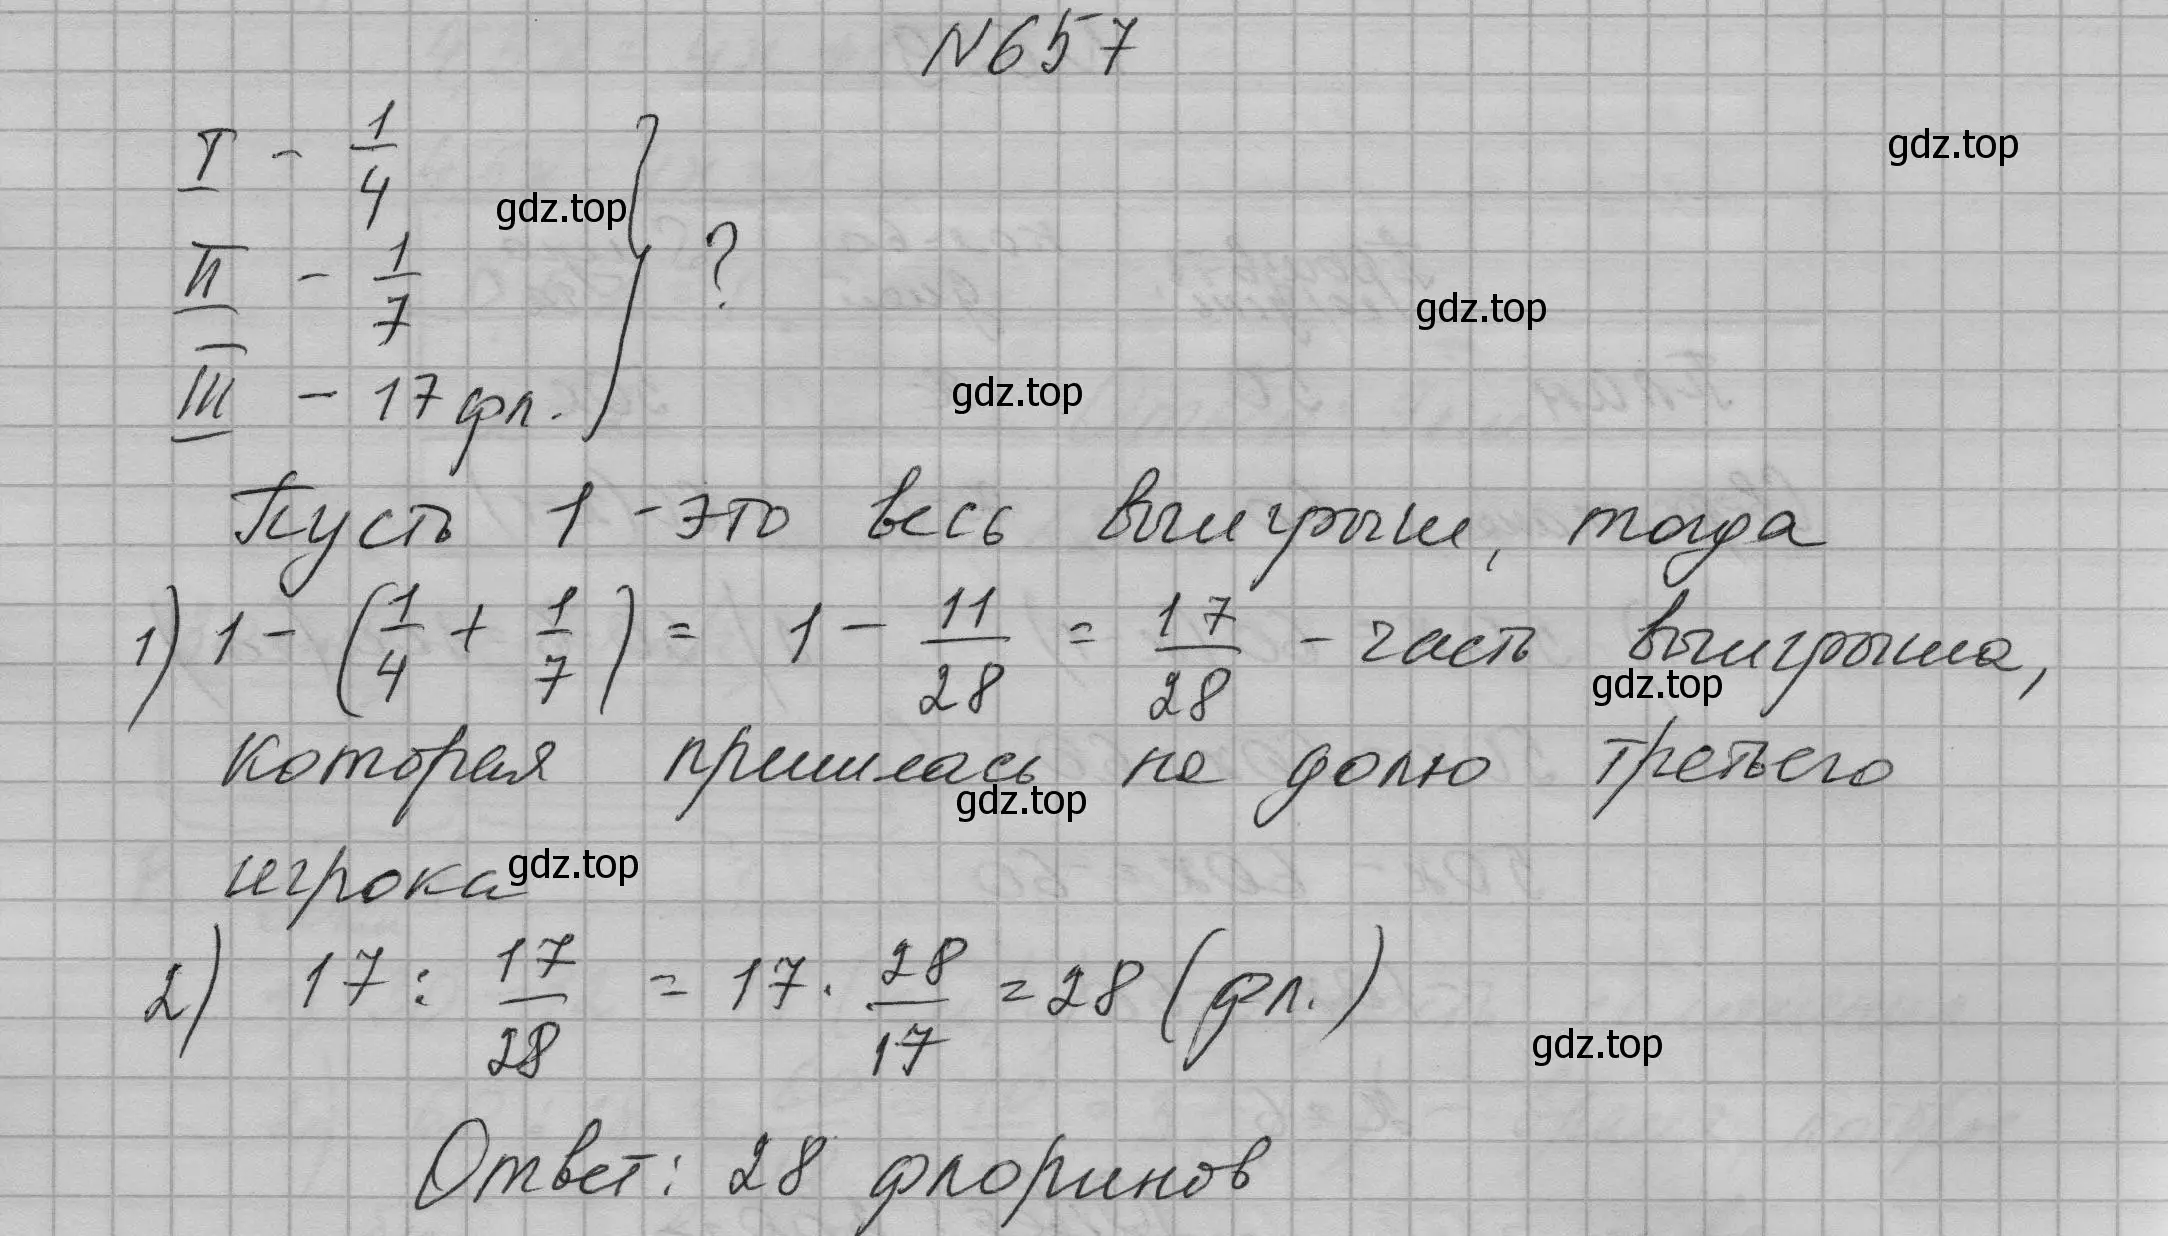 N657
I - 1/4
gdz.top
gdz.top
II - 1/7
?
gdz.top
III - 17 фл.
gdz.top
Пусть 1 - это весь выигрыш, тогда
1) 1 - (1/4 + 1/7) = 1 - 11/28 = 17/28 - часть выигрыша,
gdz.top
которая пришлась на долю третьего
gdz.top
игрока
gdz.top
2) 17 : 17/28 = 17 · 28/17 = 28 (фл.)
gdz.top
Ответ: 28 флоринов